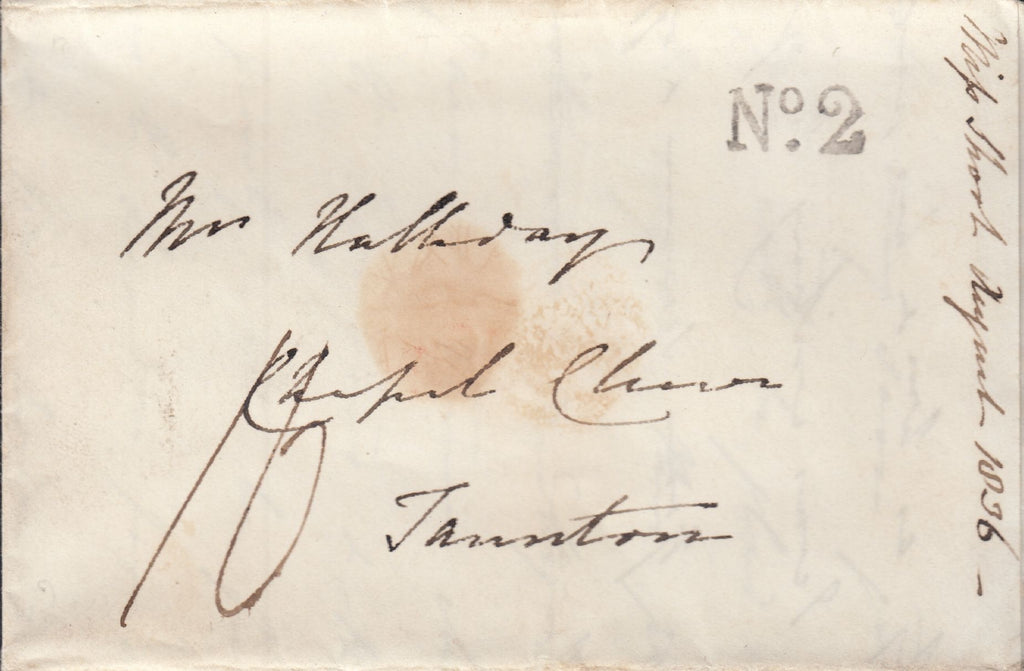 No. 2
Mrs Halliday
Chapel Cleeve
Taunton
10
Miss Short August 1836 –